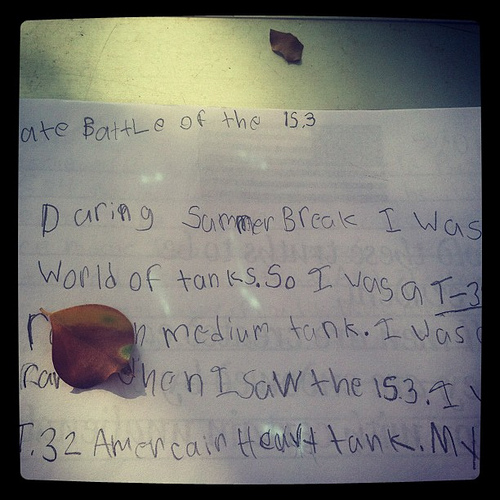 ate Battle of the 15.3
Daring Summer Break I was
World of tanks. So I was a T-3
n medium tank. I was
when I saw the 153. I
T.32 Amercain Heavt tank. My